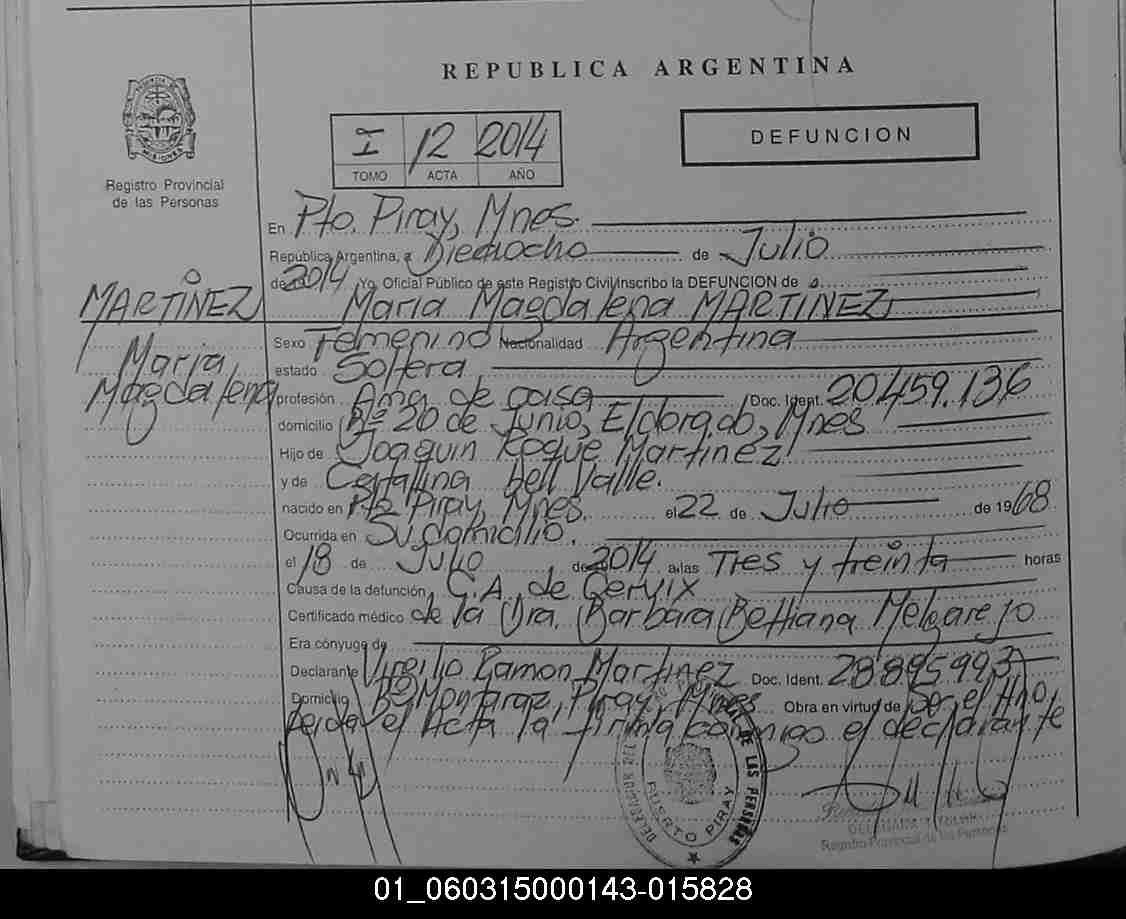 REPUBLICA ARGENTINA
PROVINCIA DE
MISIONES
Registro Provincial
de las Personas
I 12 2014
TOMO ACTA AÑO
DEFUNCION
En Pto. Piray, Mnes.
República Argentina, a Dieciocho de Julio
de 2014 Yo, Oficial Público de este Registro Civil Inscribo la DEFUNCION de
María Magdalena MARTINEZ
MARTINEZ
María
Magdalena
Sexo Femenino Nacionalidad Argentina
estado Soltera
profesión Ama de casa Doc. Ident. 20.459.136
domicilio Bº 20 de Junio, Eldorado, Mnes
Hijo de Joaquin Roque Martinez
y de Catalina Dell Valle.
nacido en Pto Piray, Mnes. el 22 de Julio de 1968
Ocurrida en Su domicilio.
el 18 de Julio de 2014 a las Tres y treinta horas
Causa de la defunción C.A. de Cervix
Certificado médico de la Dra. Barbara Bettiana Melgarejo
Era cónyuge de
Declarante Virgilio Ramon Martinez Doc. Ident. 28.895.993
Domicilio Bº Montaraz, Piray, Mnes Obra en virtud de Ser el Hno,
Leida el Acta la firma conmigo el declarante
DE LAS PERSONAS
PUERTO PIRAY
Registro Provincial de las Personas
01_060315000143-015828